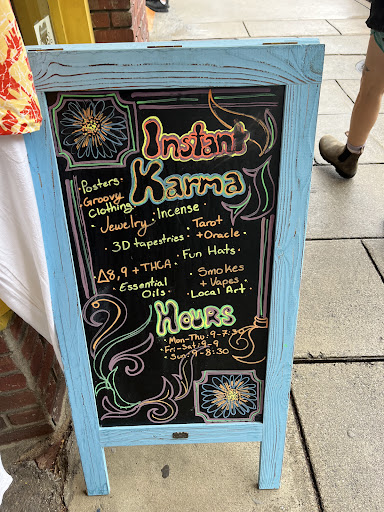 Instant
Karma
Posters •
• Groovy
Clothing
• Jewelry • Incense •
Tarot
+ Oracle •
3D tapestries •
Fun Hats •
• Δ8,9 + THCA •
Smokes
+ Vapes •
Essential
Oils •
Local Art •
Hours
• Mon-Thu: 9-7:30
• Fri-Sat: 9-9
• Sun: 9-8:30